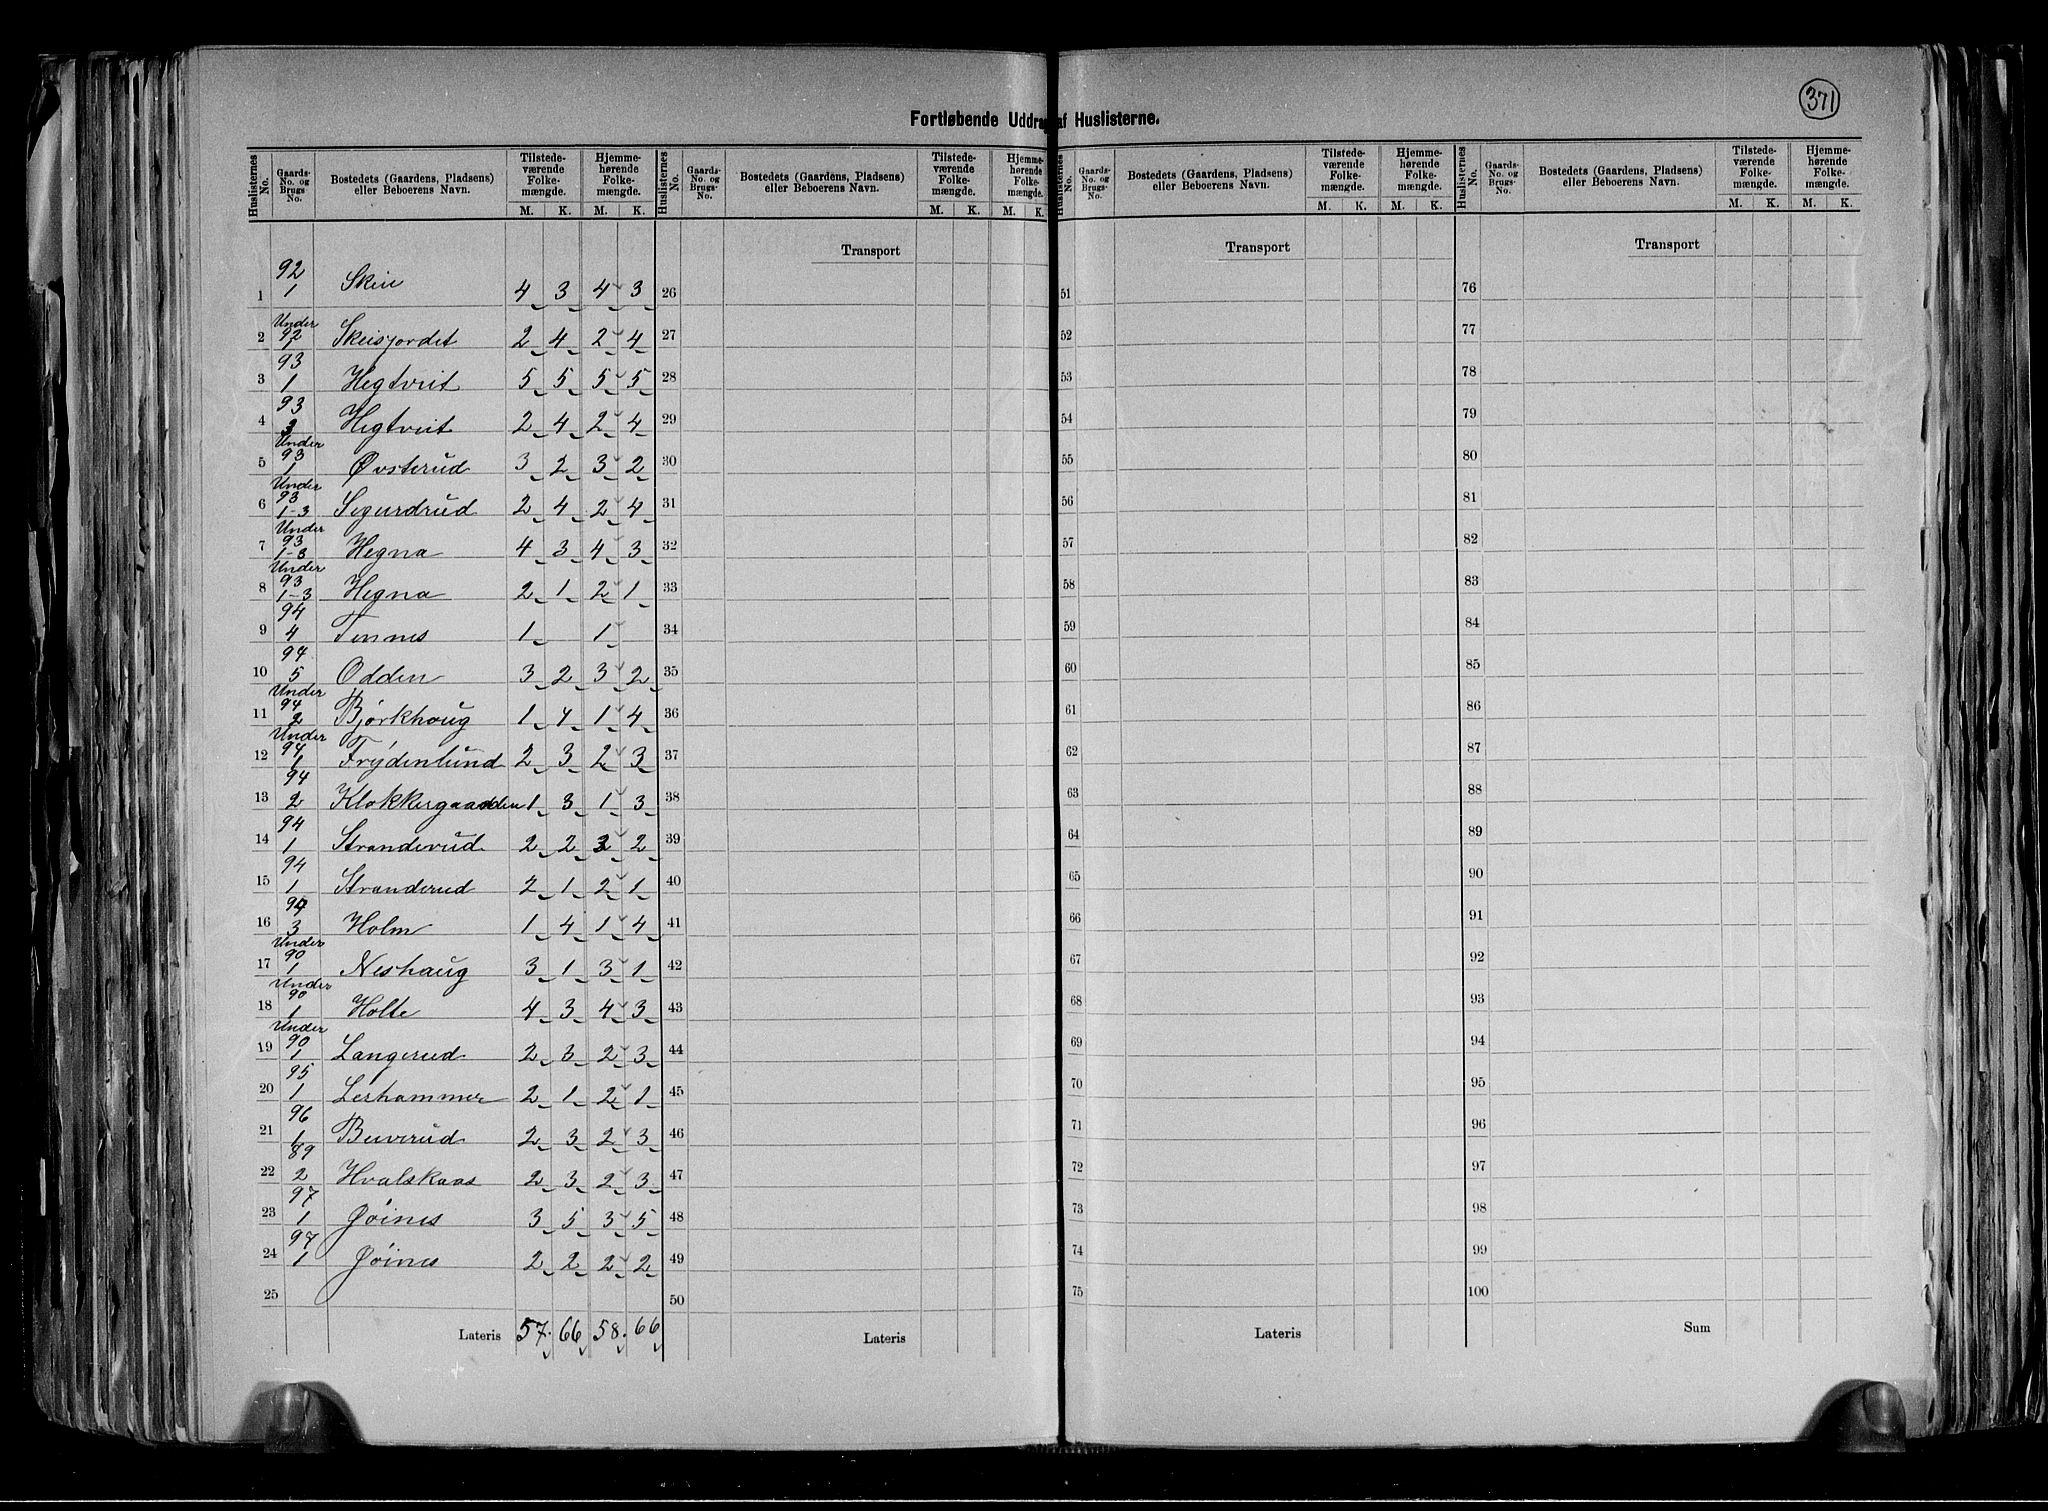 371
Fortløbende Uddrag af Huslisterne.
Huslisternes No. Gaards-No. og Brugs-No. Bostedets (Gaardens, Pladsens) eller Beboerens Navn. Tilstedeværende Folkemængde. M. K. Hjemmehørende Folkemængde. M. K.
Huslisternes No. Gaards-No. og Brugs-No. Bostedets (Gaardens, Pladsens) eller Beboerens Navn. Tilstedeværende Folkemængde. M. K. Hjemmehørende Folkemængde. M. K.
Huslisternes No. Gaards-No. og Brugs-No. Bostedets (Gaardens, Pladsens) eller Beboerens Navn. Tilstedeværende Folkemængde. M. K. Hjemmehørende Folkemængde. M. K.
Huslisternes No. Gaards-No. og Brugs-No. Bostedets (Gaardens, Pladsens) eller Beboerens Navn. Tilstedeværende Folkemængde. M. K. Hjemmehørende Folkemængde. M. K.
Transport Transport Transport
1 92/1 Skeie 4 3 4 3 26 51 76
2 Under 92/1 Skeisjordet 2 4 2 4 27 52 77
3 93/1 Hegtveit 5 5 5 5 28 53 78
4 93/3 Hegtveit 2 4 2 4 29 54 79
5 Under 93/1 Øvsterud 3 2 3 2 30 55 80
6 Under 93/1-3 Sigurdrud 2 4 2 4 31 56 81
7 Under 93/1-3 Hegna 4 3 4 3 32 57 82
8 Under 93/1-3 Hegna 2 1 2 1 33 58 83
9 94/4 Tinnes 1 1 34 59 84
10 94/5 Odden 3 2 3 2 35 60 85
11 Under 94/2 Bjørkhoug 1 4 1 4 36 61 86
12 Under 94/1 Frydenlund 2 3 2 3 37 62 87
13 94/2 Klokkergaarden 1 3 1 3 38 63 88
14 94/1 Stranderud 2 2 3 2 39 64 89
15 94/1 Stranderud 2 1 2 1 40 65 90
16 94/3 Holm 1 4 1 4 41 66 91
17 Under 90/1 Neshaug 3 1 3 1 42 67 92
18 Under 90/1 Holte 4 3 4 3 43 68 93
19 Under 90/1 Langerud 2 3 2 3 44 69 94
20 95/1 Leshammer 2 1 2 1 45 70 95
21 96/1 Buverud 2 3 2 3 46 71 96
22 89/2 Hvalskaas 2 3 2 3 47 72 97
23 97/1 Gøines 3 5 3 5 48 73 98
24 97/1 Gøines 2 2 2 2 49 74 99
25 50 75 100
Lateris 57. 66 58. 66 Lateris Lateris Sum